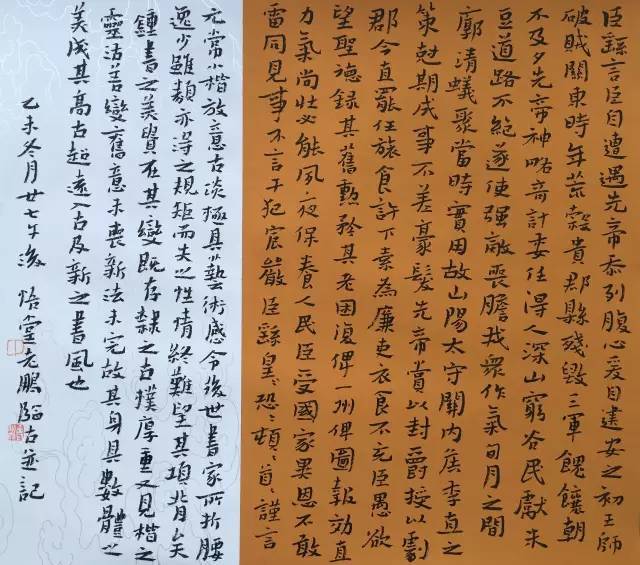 臣繇言臣自遭遇先帝忝列腹心爰自建安之初王師
破賊關東時年荒穀貴郡縣殘毀三軍餽饟朝
不及夕先帝神略奇計委任得人深山窮谷民獻米
豆道路不絕遂使強敵喪膽我眾作氣旬月之間
廓清蟻聚當時實用故山陽太守關內侯季直之
策剋期成事不差豪髮先帝賞以封爵授以劇
郡今直罷任旅食許下素為廉吏衣食不充臣愚欲
望聖德錄其舊勳矜其老困復俾一州俾圖報效直
力氣尚壯必能夙夜保養人民臣受國家異恩不敢
雷同見事不言干犯宸嚴臣繇皇皇恐恐頓頓首首謹言
元常小楷放意古淡極具藝術感令後世書家所折腰
逸少雖類亦得之規矩而失之性情終難望其項背矣
鍾書之美貴在其變既存隸之古撲厚重又見楷之
靈活善變舊意未喪新法未完故其身具數體之
美成其高古超遠入古及新之書風也
乙未冬月廿七午後 悟堂老鵬臨古並記